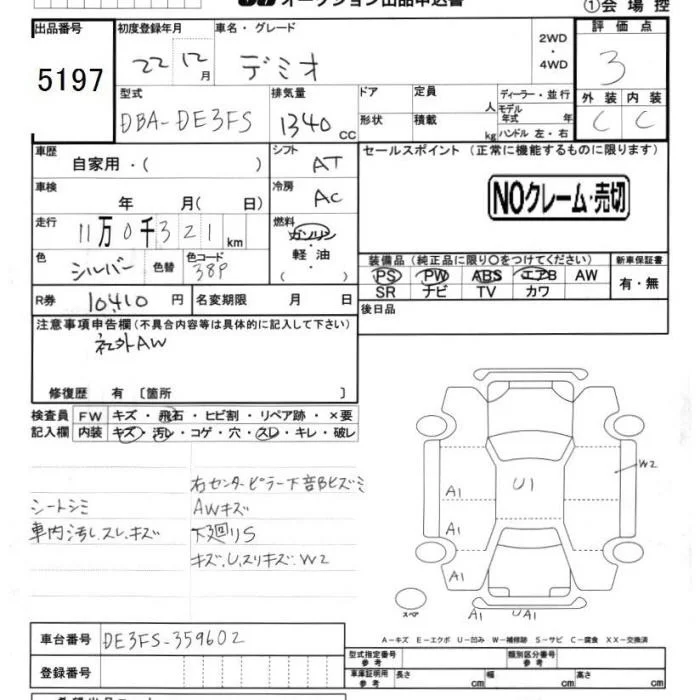 オークション出品申込書
①会場控
出品番号
5197
初度登録年月
22 12月
車名・グレード
デミオ
2WD
・
4WD
評価点
3
型式
DBA-DE3FS
排気量
1340 cc
ドア
形状
定員 人
積載 kg
ディーラー・並行
モデル年式 年
ハンドル 左・右
外装 内装
C C
車歴
自家用・( )
シフト
AT
セールスポイント (正常に機能するものに限ります)
NOクレーム・売切
車検
年 月( 日)
冷房
AC
走行
11万0千321 km
燃料
ガソリン
・
軽油
( )
色
シルバー
色替
色コード
38P
装備品 (純正品に限り〇をつけてください)
PS PW ABS エアB AW
SR ナビ TV カワ
新車保証書
有・無
R券 10,410 円
名変期限 月 日
後日品
注意事項申告欄(不具合内容等は具体的に記入して下さい)
社外AW
修復歴 有 〔箇所 〕
検査員 FW キズ・飛石・ヒビ割・リペア跡・×要
記入欄 内装 キズ・汚レ・コゲ・穴・スレ・キレ・破レ
シートシミ
車内汚レ.スレ.キズ
右センターピラー下部Bヒズミ
AWキズ
下廻りS
キズ.U.スリキズ.W2
A1
A1
A1
U1
W2
A1
UA1
スペア
A-キズ E-エクボ U-凹み W-補修跡 S-サビ C-腐食 XX-交換済
車台番号 DE3FS-359602
登録番号
型式指定番号 参考
類別区分番号 参考
車庫証明用 参考 長さ cm 幅 cm 高さ cm